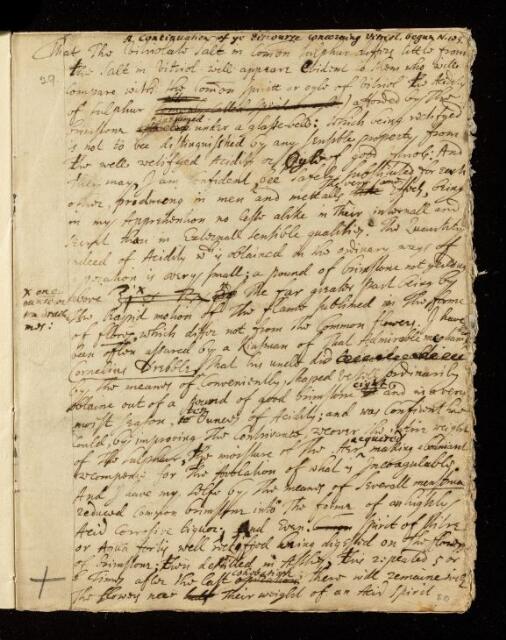 A Continuation of ye discourse concerning Vitriol. begun N. 105
29
That The Vitriolate Salt in comon Sulphur differs little from
the Salt in Vitriol will appeare Evident to Them who will
compare with the comon Spirit or oyle of Vitriol the Acidity
of Sulphur afforded by The
brimstone under a glasse-bell: which being rectifyed
is not to bee distinguished by any sensible property from
the well rectifyed Acidity or Oyle of good Vitriol: And
they may, I am confident, bee safely substituted for each
other, producing in men and mettalls The very same Effects, being
in my Apprehension no lesse alike in Their internall and
Usefull then in Externall sensible qualities. The Quantity
indeed of Acidity wch is obtained in the ordinary ways of
is very small; a pound of brimstone not yeilding
above x The far greater part being by
x one
ounce or
ten drach
mes:
the Rapid motion of The flame sublimed in The forme
of flowers which differ not from the common flowers. I have
been often assured by a Kinsman of That Admirable mechanick
Cornelius Drebble, That his uncle did ordinarily
by The meanes of Conveniently shaped vessells
obtaine out of a pound of good brimstone eight and in a very
moist season, ten Ounces of Acidity; and was confident hee
could, by improving the Contrivance, recover the intire weight
of The Sulphur, The moisture of The Air making a Constant
recompence for the Avolation of what is Incoagulable.
And I have my selfe by The meanes of severall menstruums
reduced Common brimstone into The forme of an highly
Acid Corrosive liquor, And even Spirit of Nitre
or Aqua fortis well being digested on The flowers
of brimstone; then distilled in Ashes, this repeated 5 or
6 Times after the last cohobation There will remaine with
The flowers neer Their weight of an Acid Spirit
30